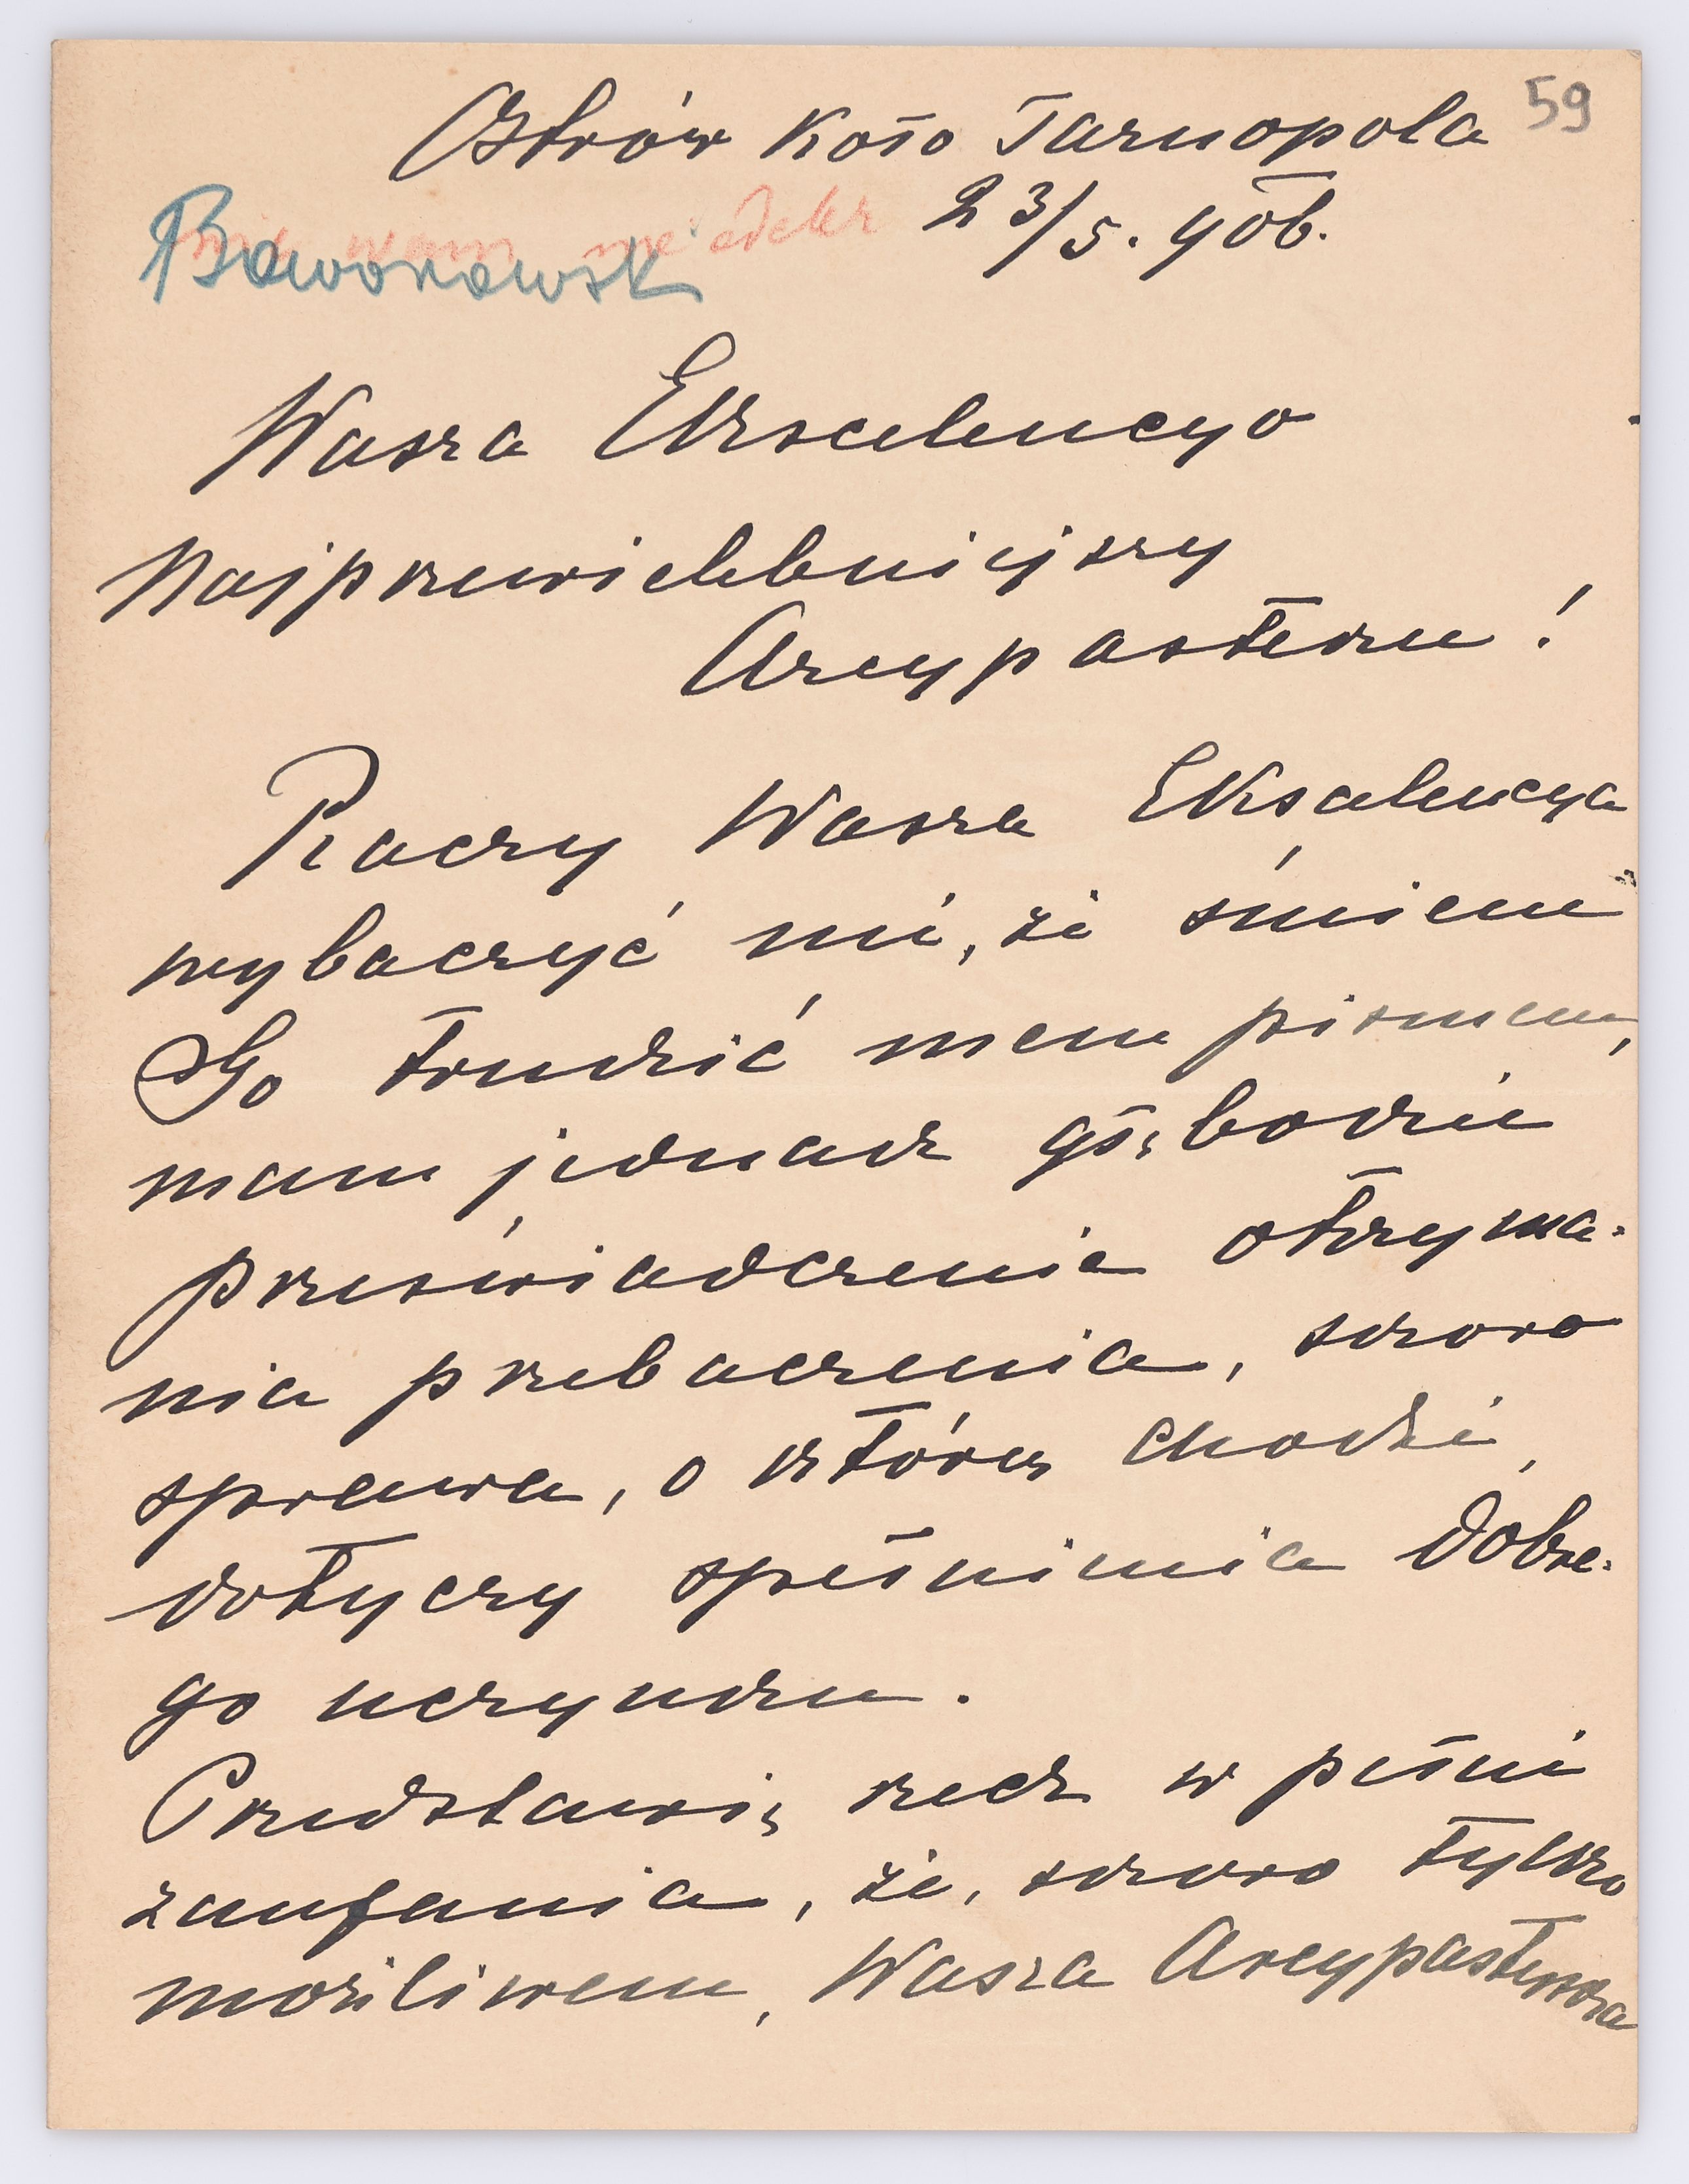 59
Ostrów koło Tarnopola
23/5. 906.
Baworowsk
Wasza Ekscelencyo
Najprzewielebniejszy
Arcypasterzu!
Raczy Wasza Ekscelencya
wybaczyć mi, że śmiem
Go trudzić mem pismem,
mam jednak głębokie
przeświadczenie otrzyma-
nia przebaczenia, skoro
sprawa, o którą chodzi,
dotyczy spełnienia dobre-
go uczynku.
Przedstawię rzecz w pełni
zaufania, że, skoro tylko
możliwem, Wasza Arcypasterska